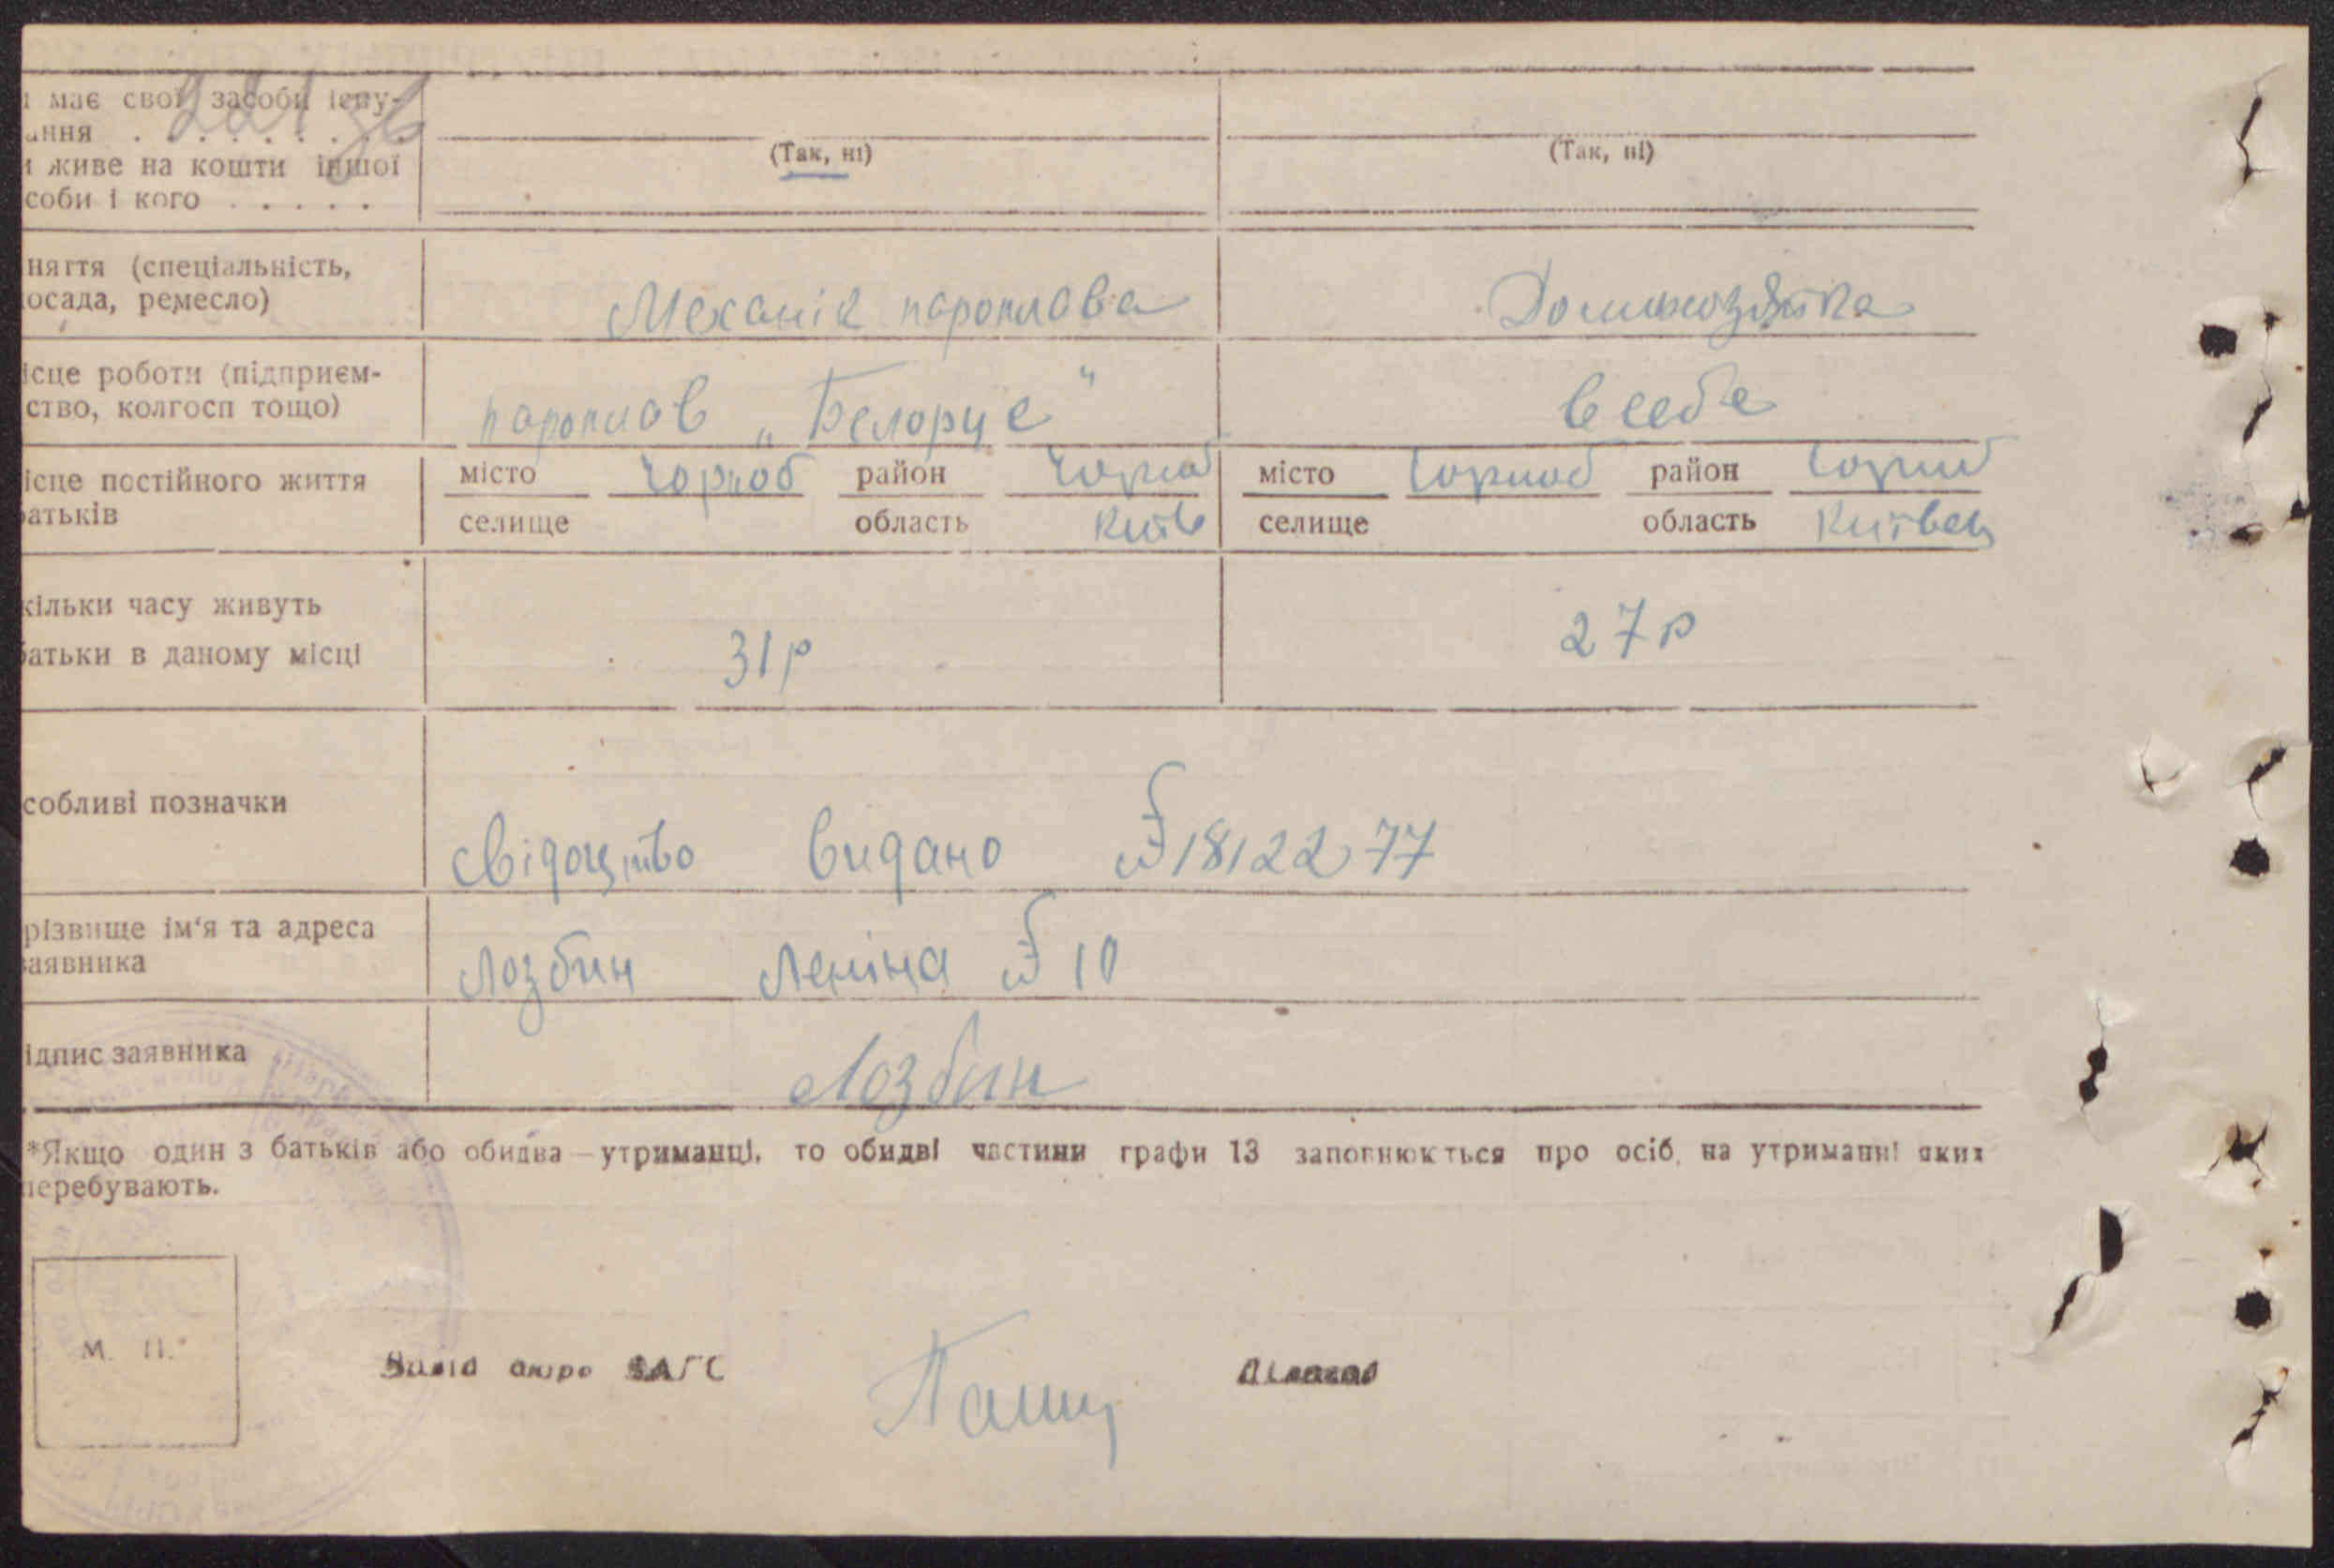 и має свої засоби існу-
ання . . . . . . .
(Так, ні) (Так, ні)
и живе на кошти іншої
соби і кого . . . . .
няття (спеціальність,
осада, ремесло)
Механік пароплава Домохозяйка
ісце роботи (підприєм-
ство, колгосп тощо)
пароплав „Белорус" в себе
ісце постійного життя
батьків
місто Чорноб район Чорноб місто Чорноб район Чорноб
селище область Київ селище область Київськ
кільки часу живуть
батьки в даному місці
31р 27р
собливі позначки
свідоцтво видано № 1812277
різвище ім'я та адреса
заявника
Лозбин Леніна № 10
ідпис заявника
Лозбин
*Якщо один з батьків або обидва — утриманці, то обидві частини графи 13 заповнюються про осіб, на утриманні яких
перебувають.
М. П.
бюро ЗАГС